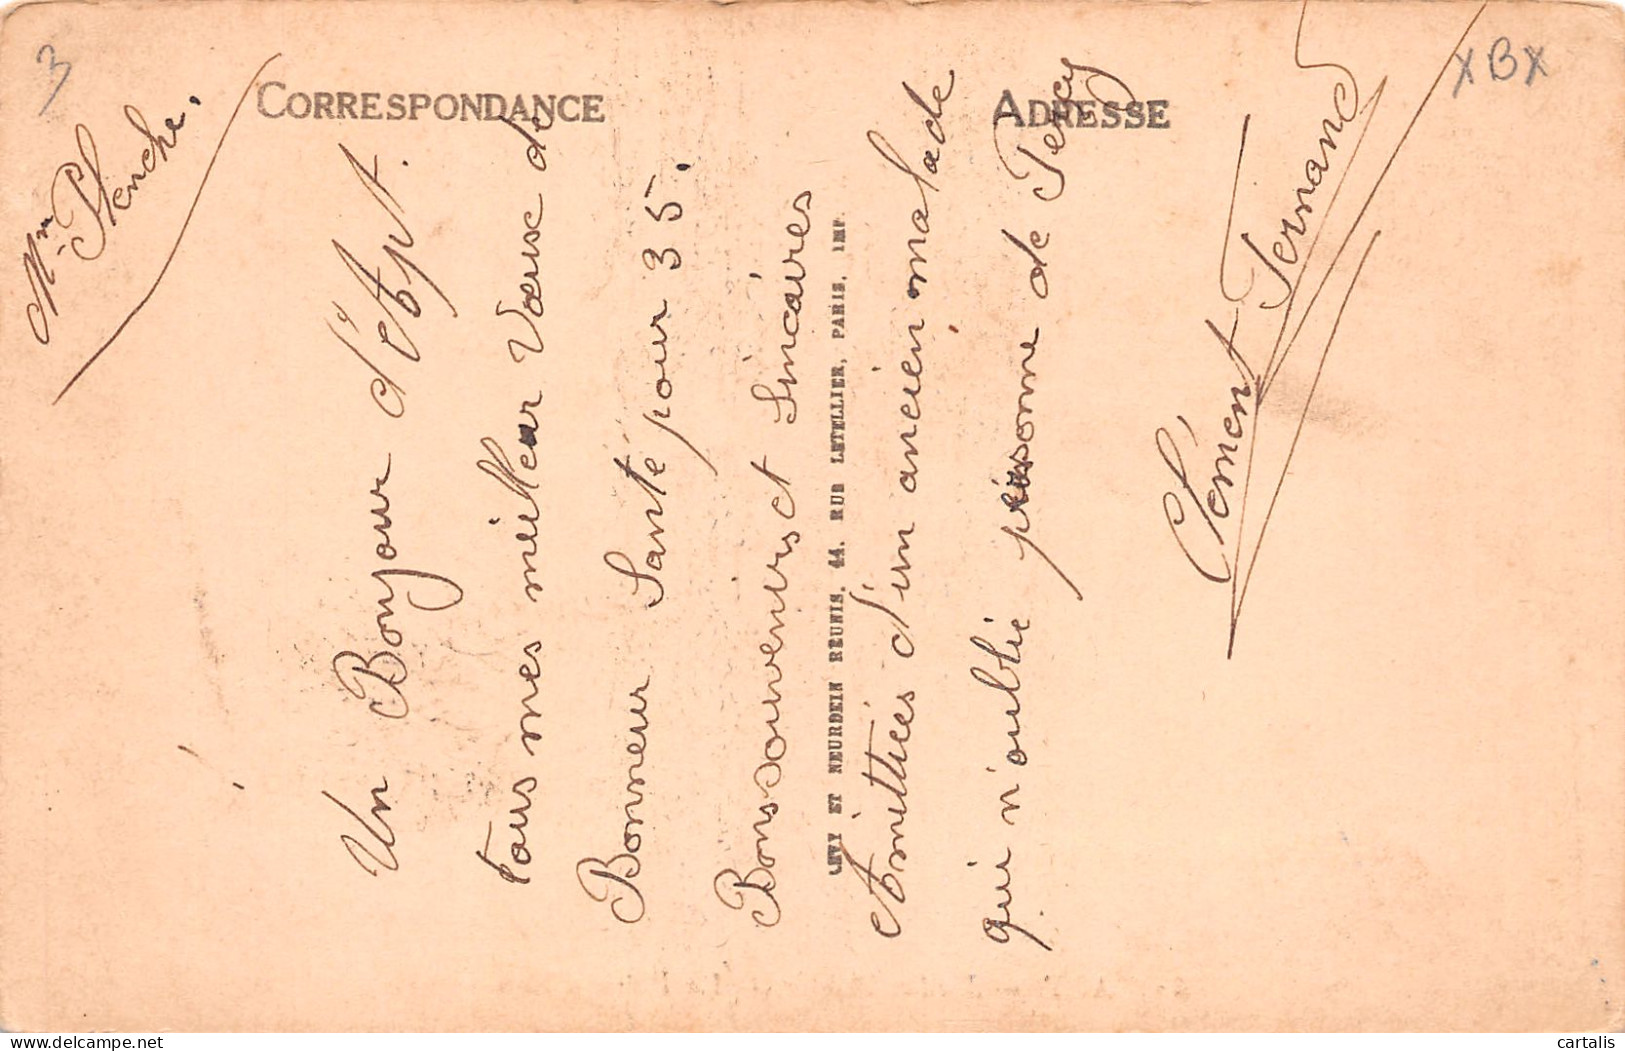 3
CORRESPONDANCE
ADRESSE
XBX
Mme Planche.
Un Bonjour d'Apt.
tous mes meilleur Vœux de
Bonneur Santé pour 35.
Bons souvenirs et Sincaires
Amittiés d'un ancien malade
qui n'oublie personne de Percy
Clément Fernand
LEVY ET NEURDEIN RÉUNIS, 44, RUE LETELLIER, PARIS, IMP.
cartalis
delcampe.net